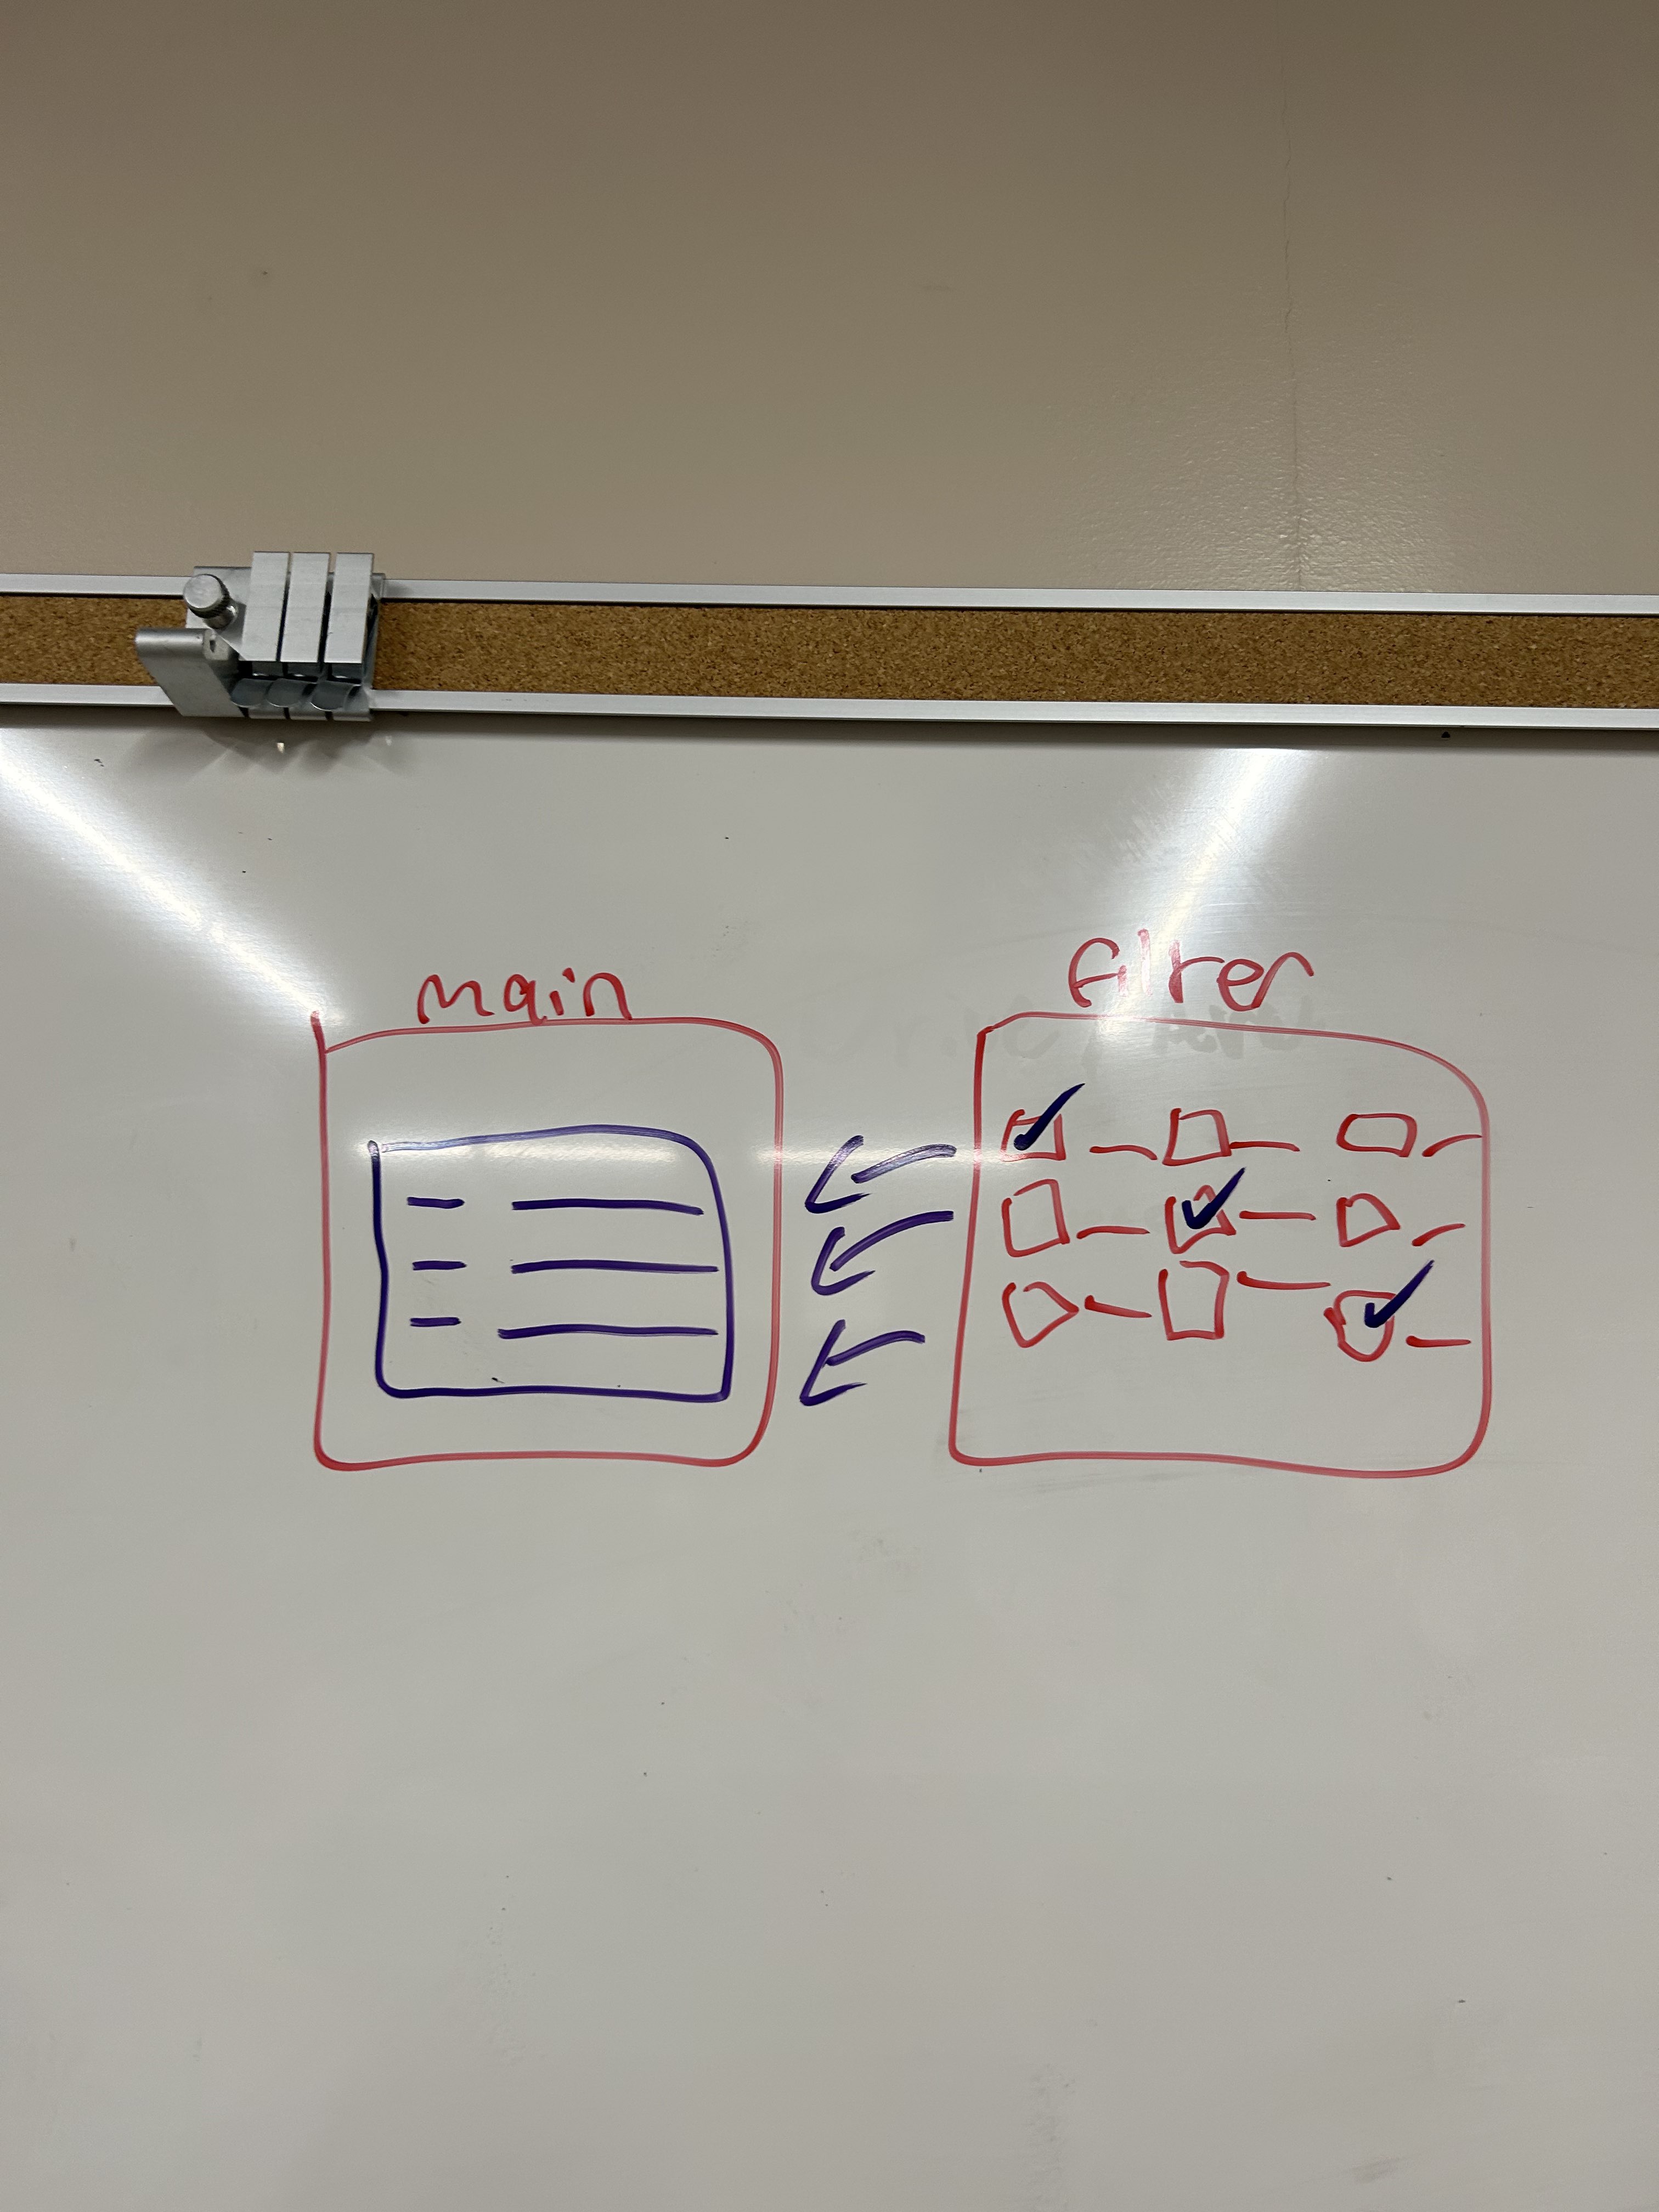 main
filter